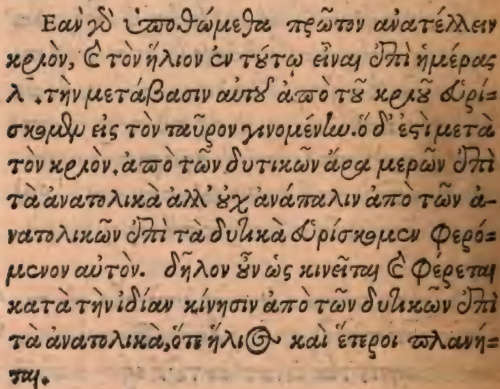 Ἐὰν γὸ ὑποθώμεθα πρῶτον ἀνατέλλειν
κριὸν, καὶ τὸν ἥλιον ἐν τούτῳ εἶναι ἐπὶ ἡμέρας
λ. τὴν μετάβασιν αὐτοῦ ἀπὸ τοῦ κριοῦ εὑρί-
σκομεν εἰς τὸν ταῦρον γινομένην. ὅ δ' ἐστὶ μετὰ
τὸν κριὸν. ἀπὸ τῶν δυτικῶν ἄρα μερῶν ἐπὶ
τὰ ἀνατολικὰ ἀλλ' οὐχ ἀνάπαλιν ἀπὸ τῶν ἀ-
νατολικῶν ἐπὶ τὰ δυτικὰ εὑρίσκομεν φερό-
μενον αὐτὸν. δῆλον οὖν ὡς κινεῖται καὶ φέρεται
κατὰ τὴν ἰδίαν κίνησιν ἀπὸ τῶν δυτικῶν ἐπὶ
τὰ ἀνατολικὰ, ὅτε ἥλιος καὶ ἕτεροι πλανῆ-
ται.